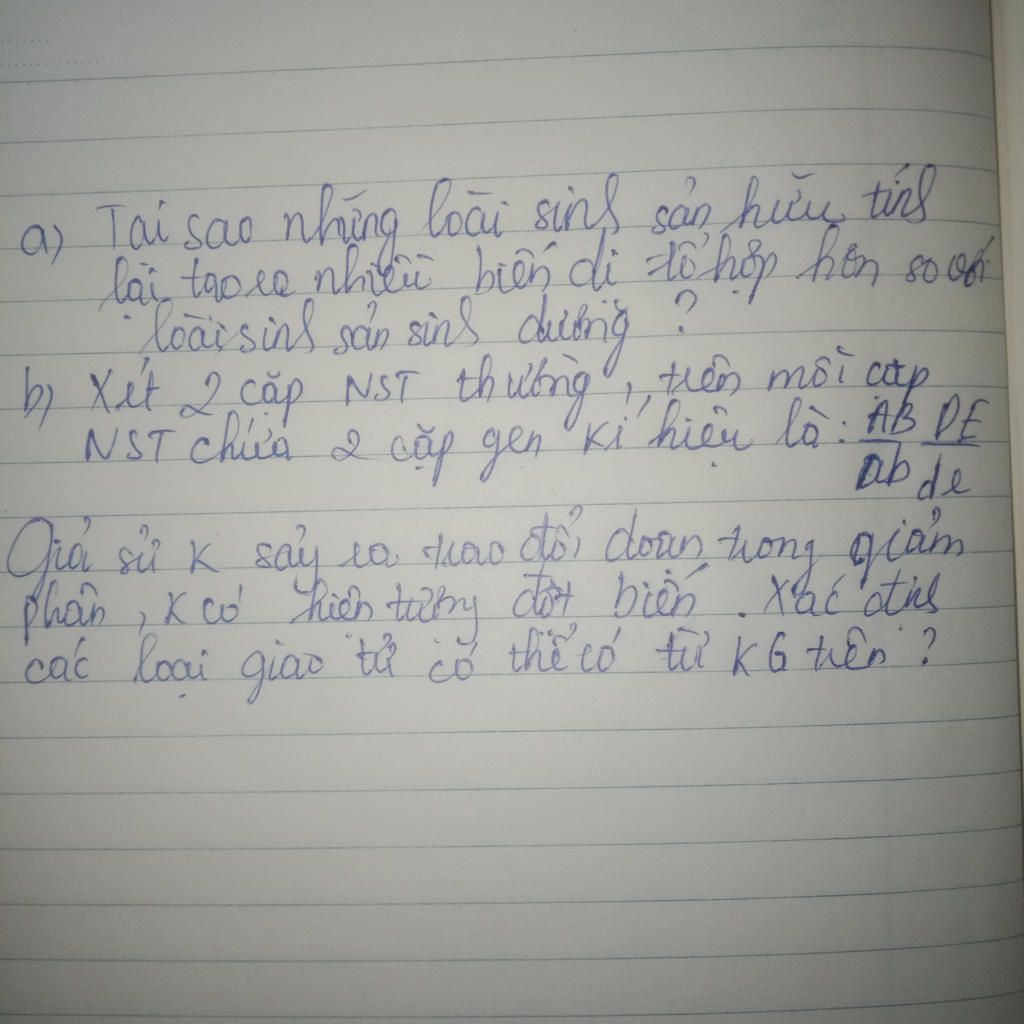 a) Tại sao những loài sinh sản hữu tính
lại tạo ra nhiều biến dị tổ hợp hơn so với
loài sinh sản sinh dưỡng ?
b) Xét 2 cặp NST thường , trên mỗi cặp
NST chứa 2 cặp gen kí hiệu là : AB DE
ab de
Giả sử K sảy ra trao đổi đoạn trong giảm
phân , K có hiện tượng đột biến . Xác định
các loại giao tử có thể có từ KG trên ?